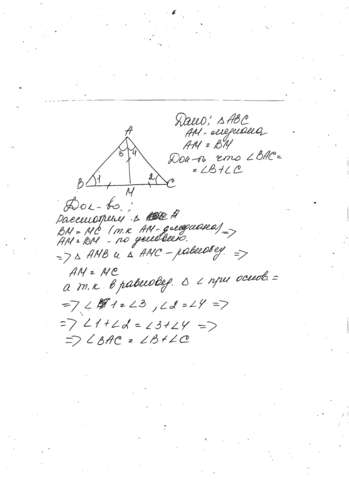 Дано: △ABC
AM - медиана
AM = BM
Док-ть что ∠BAC =
= ∠B + ∠C
A
3 4
B 1 2 C
M
Док-во:
Рассмотрим △
BM = MC (т.к AM - медиана) =>
AM = BM - по условию.
=> △ AMB и △ AMC - равнобед. =>
AM = MC
а т.к. в равнобед. △ ∠ при основ =
=> ∠1 = ∠3, ∠2 = ∠4 =>
=> ∠1 + ∠2 = ∠3 + ∠4 =>
=> ∠BAC = ∠B + ∠C